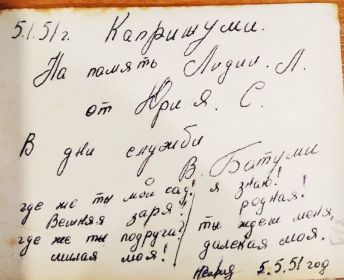 5.1.51 г. Капришуми.
На память Лидии. Л.
от Юрия. С.
В дни службы
В. Батуми
где же ты мой сад!
Вешняя заря!
где же ты подруга?
милая моя!
я знаю!
родная!
ты ждеш меня,
далекая моя.
5.5.51 год